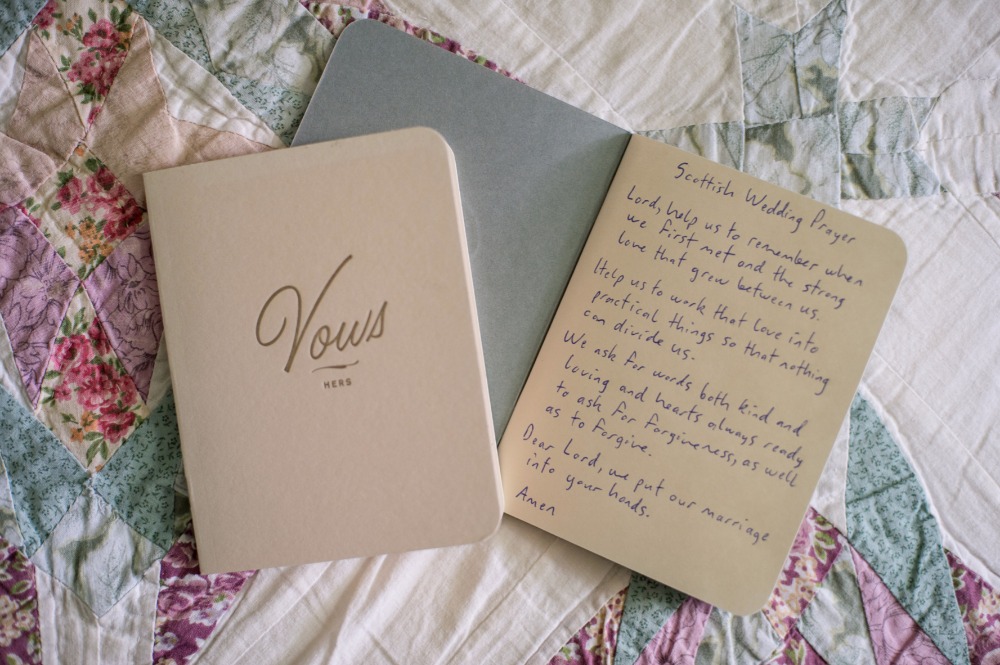 Vows
HERS
Scottish Wedding Prayer
Lord, help us to remember when
we first met and the strong
love that grew between us.
Help us to work that love into
practical things so that nothing
can divide us.
We ask for words both kind and
loving and hearts always ready
to ask for forgiveness, as well
as to forgive.
Dear Lord, we put our marriage
into your hands.
Amen